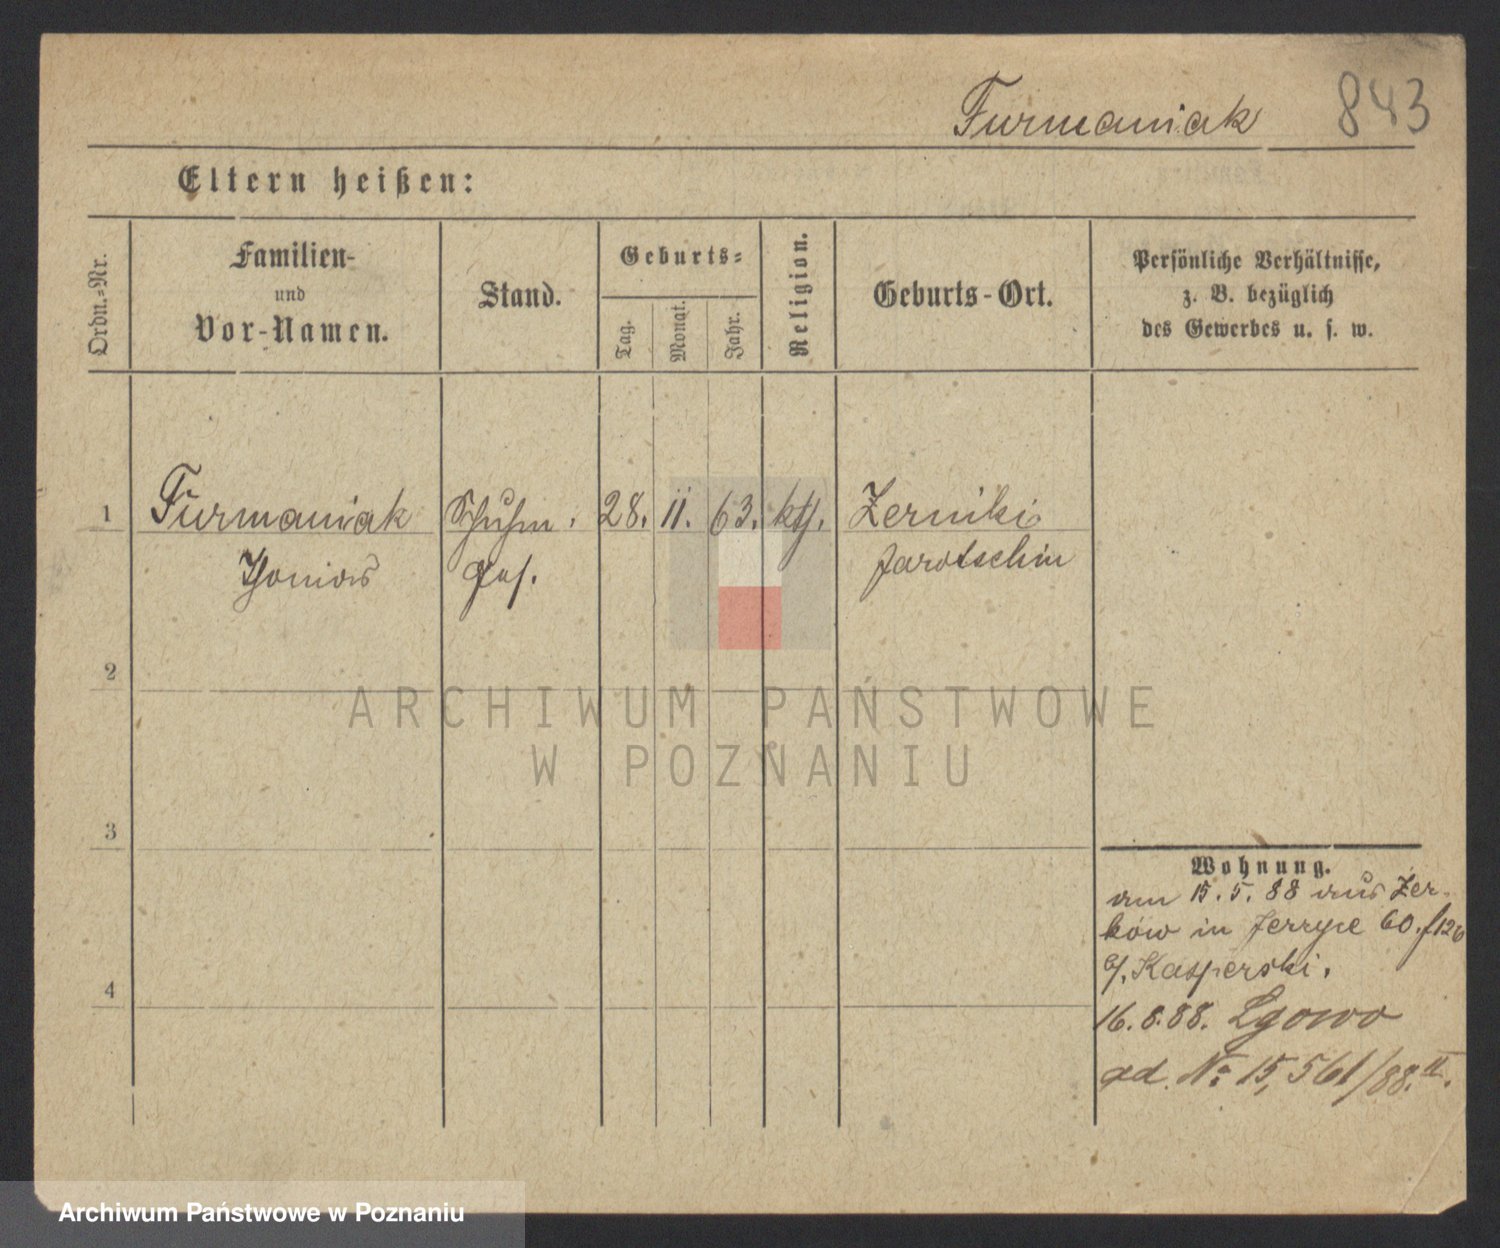 Furmaniak 843
Eltern heißen:
Ordn.-Nr.
Familien-
und
Vor-Namen.
Stand.
Geburts-
Tag.
Monat.
Jahr.
Religion.
Geburts-Ort.
Persönliche Verhältnisse,
z. B. bezüglich
des Gewerbes u. s. w.
1 Furmaniak Schuhm. 28. 11. 63. kth. Zerniki
Thomas Ges. Jarotschin
2
ARCHIWUM PAŃSTWOWE
W POZNANIU
3
Wohnung.
am 15. 5. 88 aus Zer-
ków in Jerzyce 60.
b/. Kasperski.
4
16. 8. 88. Lgowo
ad. No 15,561/88. II.
Archiwum Państwowe w Poznaniu